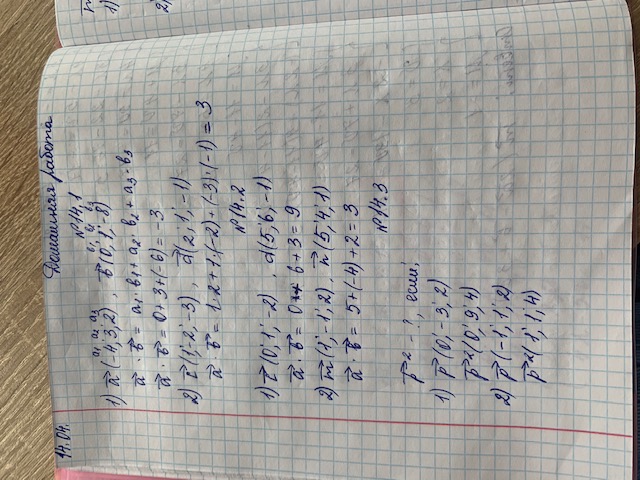 14.04.
Домашняя работа
№14.1
a₁ a₂ a₃ b₁ b₂ b₃
1) a⃗ (-4; 3; 2) , b⃗ (0; 1; -8)
a⃗ · b⃗ = a₁ · b₁ + a₂ · b₂ + a₃ · b₃
a⃗ · b⃗ = 0 + 3 + (-6) = -3
2) c⃗ (1; -2; -3) , d⃗ (2; 1; -1)
a⃗ · b⃗ = 1 · 2 + 1 · (-2) + (-3) · (-1) = 3
№14.2
1) c⃗ (0; 1; -2) , d (5; 6; -1)
a⃗ · b⃗ = 0 + 6 + 3 = 9
2) m⃗ (1; -1; 2) , n⃗ (5, 4, 1)
a⃗ · b⃗ = 5 + (-4) + 2 = 3
№14.3
p⃗² - ?, если;
1) p⃗ (0; -3; 2)
p⃗² (0; 9; 4)
2) p⃗ (-1; 1; 2)
p⃗² (1; 1; 4)